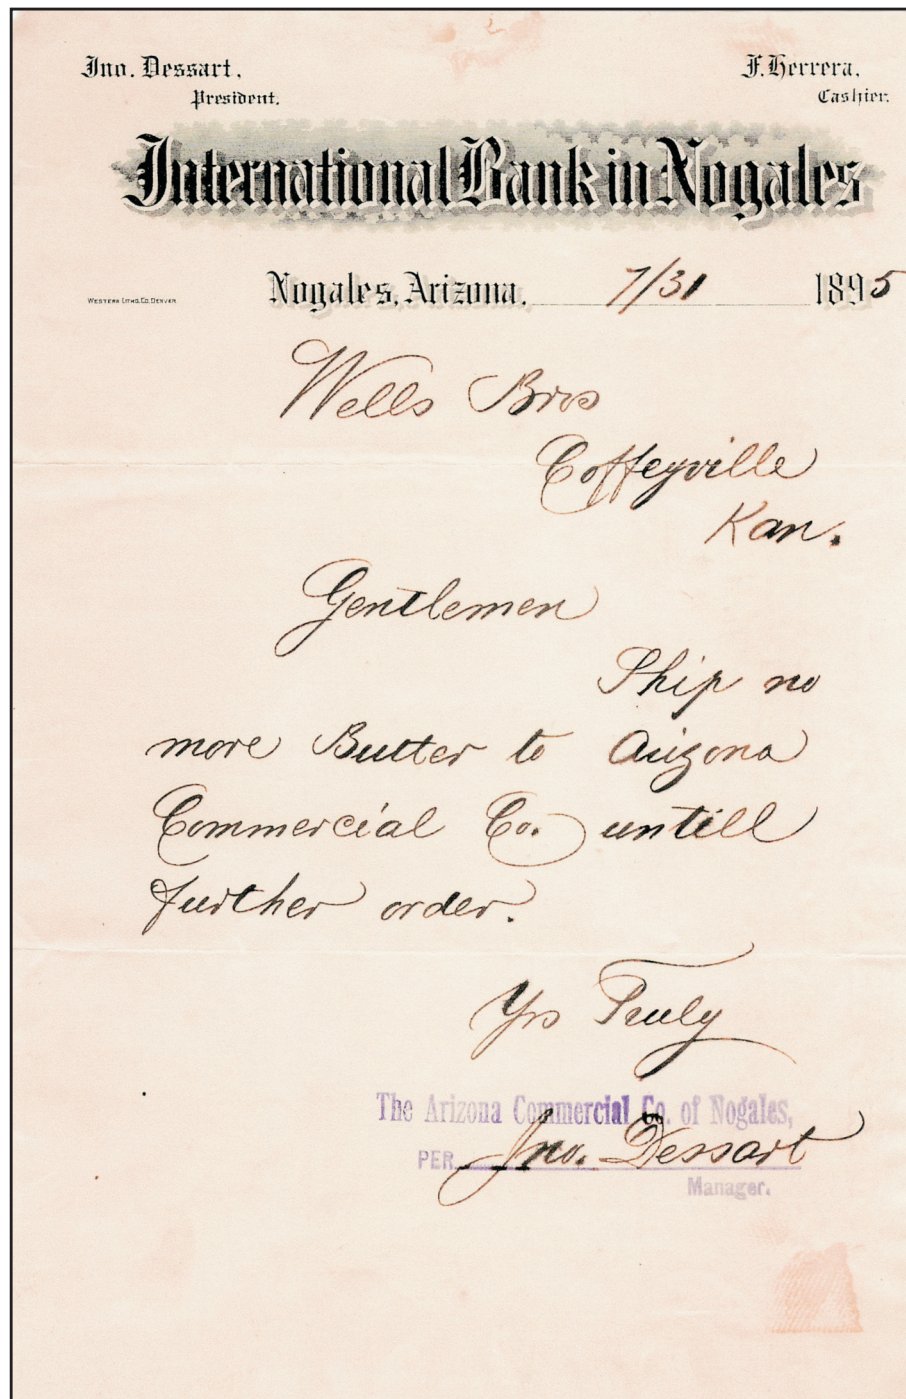 Jno. Dessart,
President.
F. Herrera,
Cashier.
International Bank in Nogales
Western Litho. Co. Denver
Nogales, Arizona, 7/31 1895
Wells Bros
Coffeyville
Kan.
Gentlemen
Ship no
more Butter to Arizona
Commercial Co. untill
further order.
Yrs Truly
The Arizona Commercial Co. of Nogales,
PER Jno. Dessart
Manager.